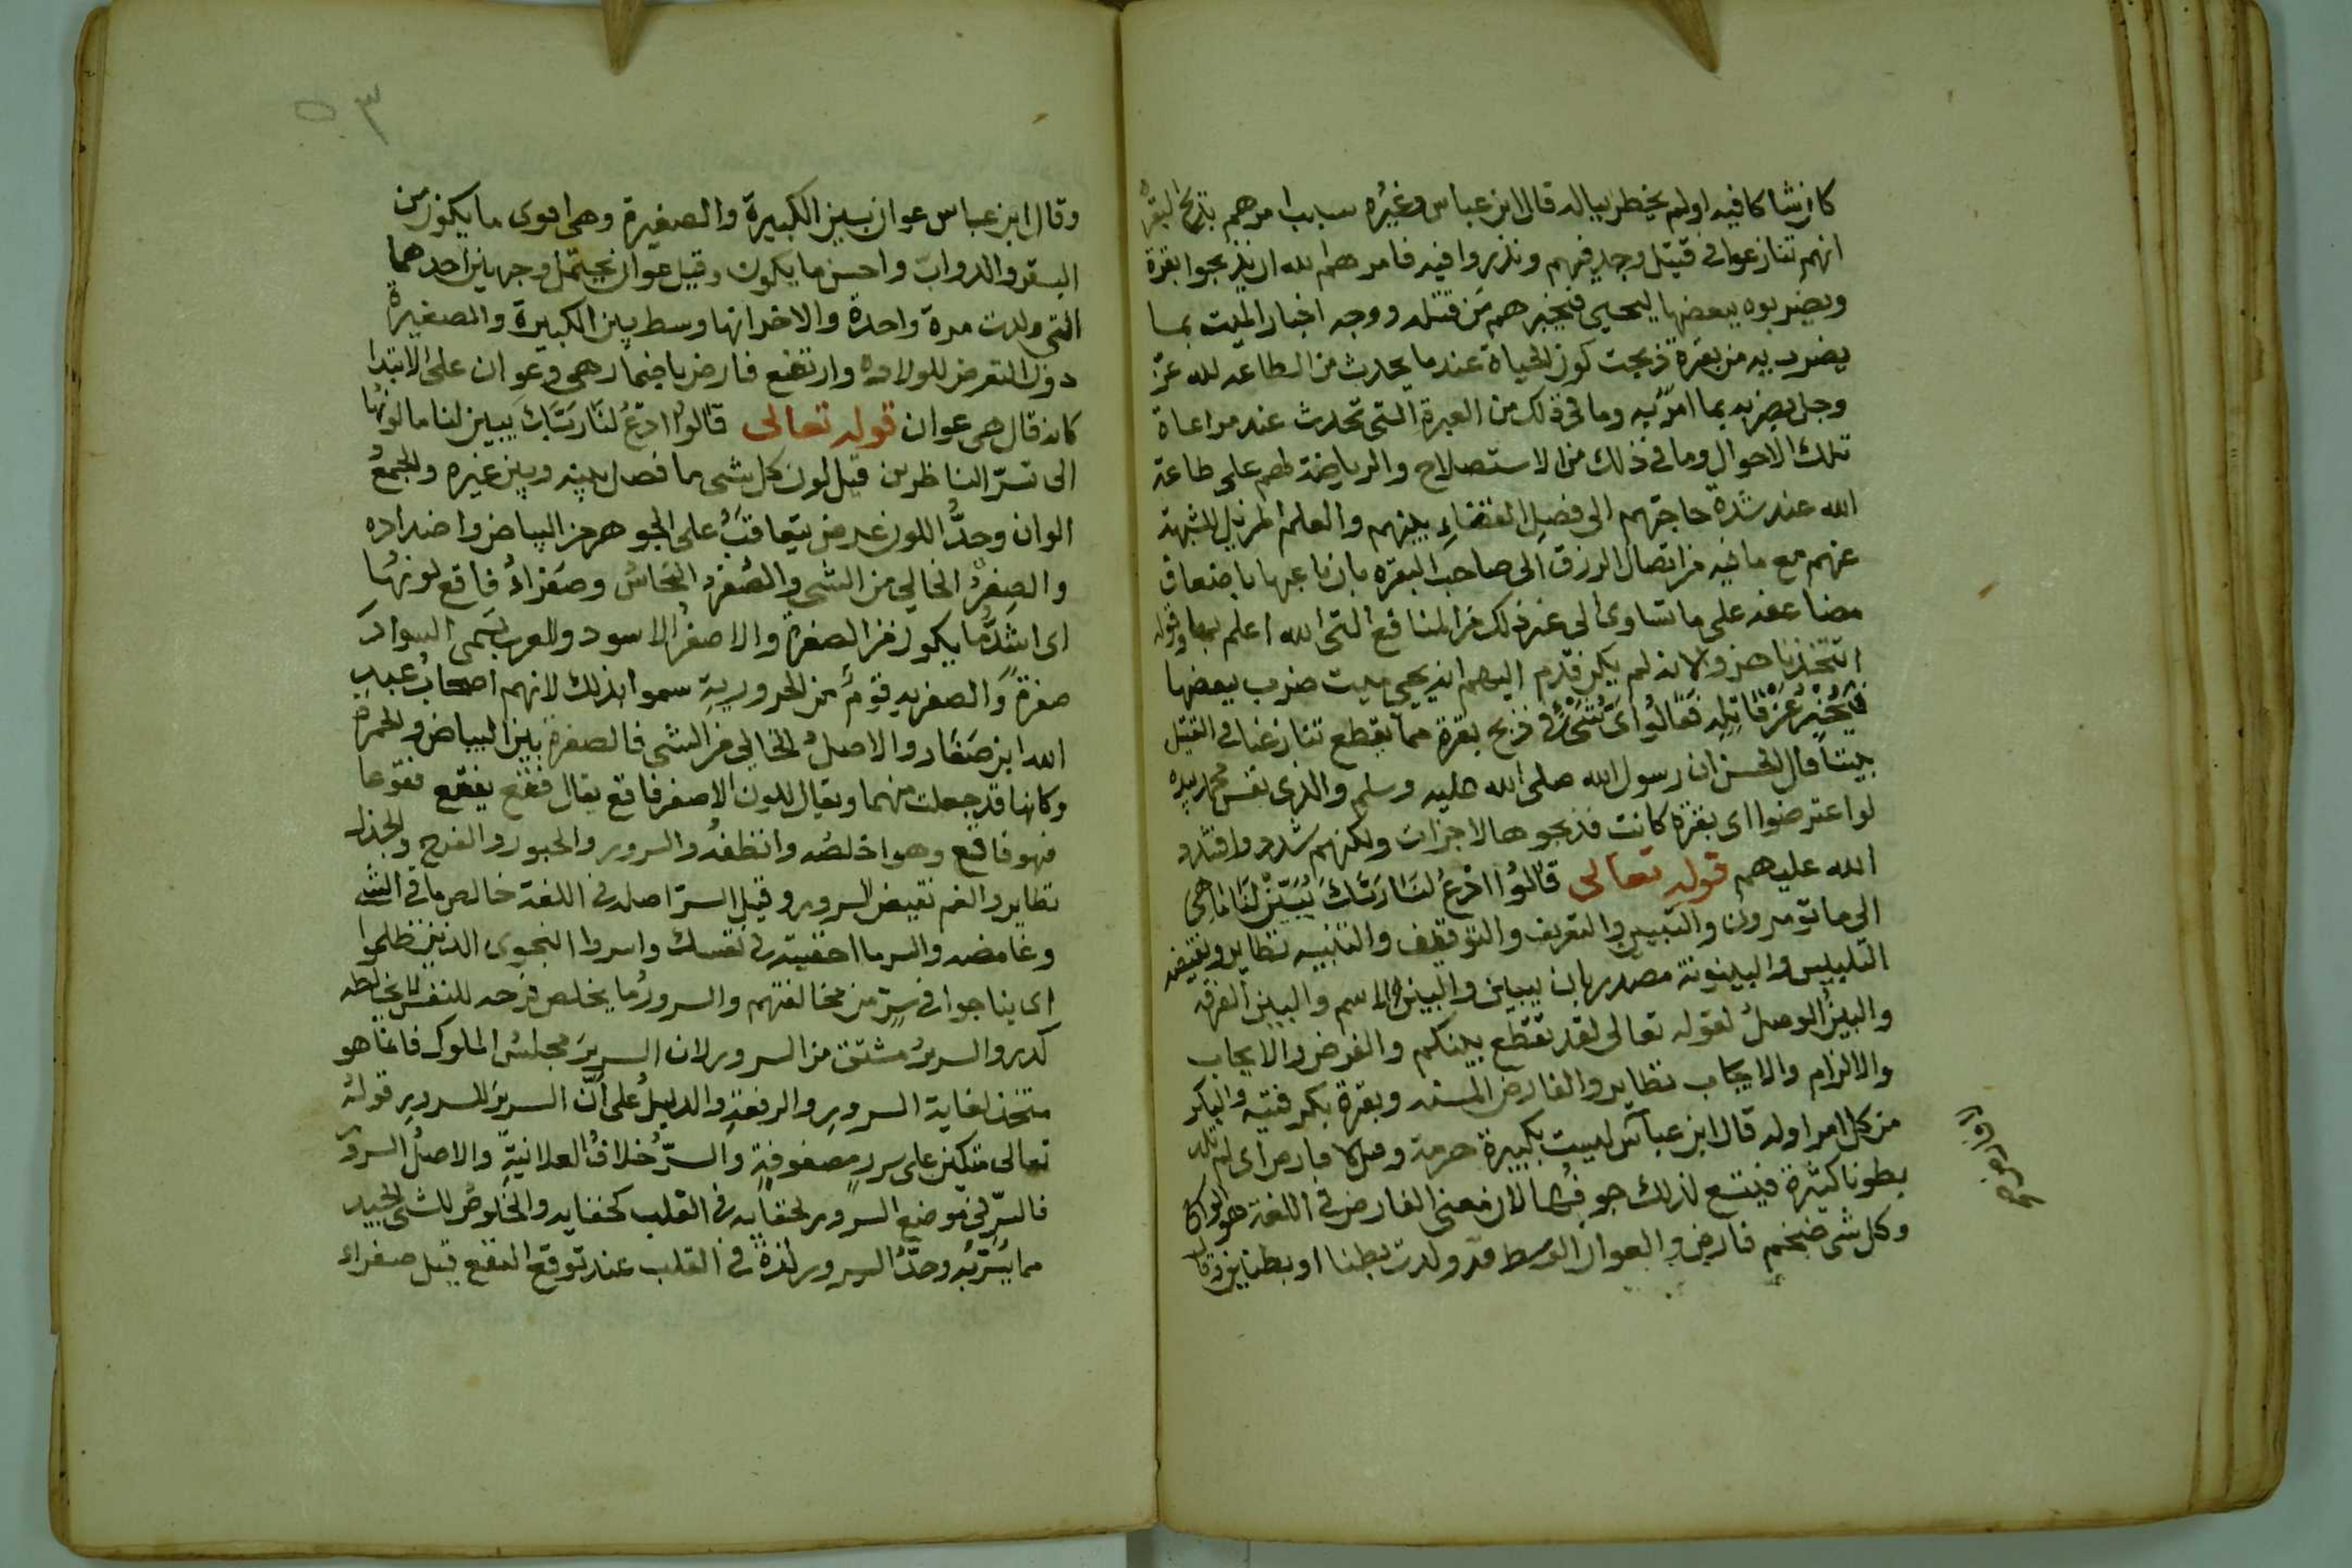 كان شاكا فيه او لم يخطر بباله قال ابن عباس وغيره سبب امرهم بذبح البقرة
انهم تنازعوا في قتيل وجد فيهم وتدروا فيه فامرهم الله ان يذبحوا بقرة
ويضربوه ببعضها ليحيى فيخبرهم من قتله ووجه اخبار الميت بما
يضرب به من بقرة ذبحت كون الحياة عندما يحدث من الطاعه لله عز
وجل بضربه بما امر به وما في ذلك من العبرة التي تحدث عند مراعاة
تلك الاحوال وما في ذلك من الاستصلاح والرياضة لهم على طاعة
الله عند شدة حاجتهم الى فصل القضاء بينهم والعلم المزيل للشبهة
عنهم مع ما فيه من اتصال الرزق الى صاحب البقره بان باعها باضعاف
مضاعفه على ما تساوى الى غير ذلك من المنافع التي الله اعلم بها وقوله
اتتخذنا هزوا لانه لم يكن قدم اليهم انه يحيى ميت ضرب ببعضها
فيخبر عن قاتله فقالوا اي شيء في ذبح بقرة مما يقطع تنازعنا في القتيل
بيننا قال الحسن ان رسول الله صلى الله عليه وسلم والذي نفس محمد بيده
لو اعترضوا اي بقرة كانت فذبحوها لاجزات ولكنهم شددوا فشدد
الله عليهم قوله تعالى قالوا ادع لنا ربك يبين لنا ما هي
الى ما تومرون والتبيين والتعريف والتوقيف والتنبيه نظاير ونقيضه
التلبيس والبينونة مصدر بان يبين والبين الاسم والبين الفرقه
والبين الوصل لقوله تعالى لقد تقطع بينكم والفرض والايجاب
والالزام والايجاب نظاير والفارض المسنه وبقرة بكر فتيه والبكر
من كل امر اوله قال ابن عباس ليست بكبيرة هرمة وقيل لا فارض اي لم تلد
بطونا كثيرة فيتسع لذلك جوفها لان معنى الفارض في اللغة هو الواسع
وكل شى ضخم فارض والعوان الوسط قد ولدت بطنا او بطنين وقال
وقال ابن عباس عوان بين الكبيرة والصغيرة وهي اقوى ما يكون من
البقر والدواب واحسن ما يكون وقيل عوان يحتمل وجهين احدهما
التي ولدت مرة واحدة والاخر انها وسط بين الكبيرة والصغيرة
دون التعرض للولاده وارتفع فارض باضمار هي وعوان على الابتدا
كانه قال هي عوان قوله تعالى قالوا ادع لنا ربك يبين لنا ما لونها
الى تسر الناظرين قيل لون كل شى ما فصل بينه وبين غيره والجمع
الوان وحد اللون عرض يتعاقب على الجوهر من البياض واضداده
والصفر الخالي من الشى والصفر النحاس وصفراء فاقع لونها
اى اشد ما يكون من الصفرة والاصفر الاسود والعرب تسمى السواد
صفرة والصفريه قوم من الحرورية سموا بذلك لانهم اصحاب عبد
الله ابن صفار والاصل الخالي من الشى فالصفرة بين البياض والحمرة
وكانها قد جعلت منهما ويقال للون الاصفر فاقع يقال فقع يفقع فقوعا
فهو فاقع وهو اخلصه وانظفه والسرور والحبور والفرح والجذل
نظاير والغم نقيض السرور وقيل السر اصله في اللغة خالص ما في الشى
وغامضه والسر ما اخفيته في نفسك واسروا النجوى الذين ظلموا
اى يناجوا في سر من مخالفتهم والسرور ما يخلص فرحه للنفس لا يخالطه
كدر والسرير مشتق من السرور لان السرير مجلس الملوك فانما هو
متخذ لغاية السرور والرفعة والدليل على ان السرير للسرير قوله
تعالى متكئين على سرر مصفوفة والسر خلاف العلانية والاصل السرور
فالسر في موضع السرور لخفايه في القلب كخفايه والخلوص للشى الجيد
مما يسر به وحد السرور لذة في القلب عند توقع النفع قيل صفراء